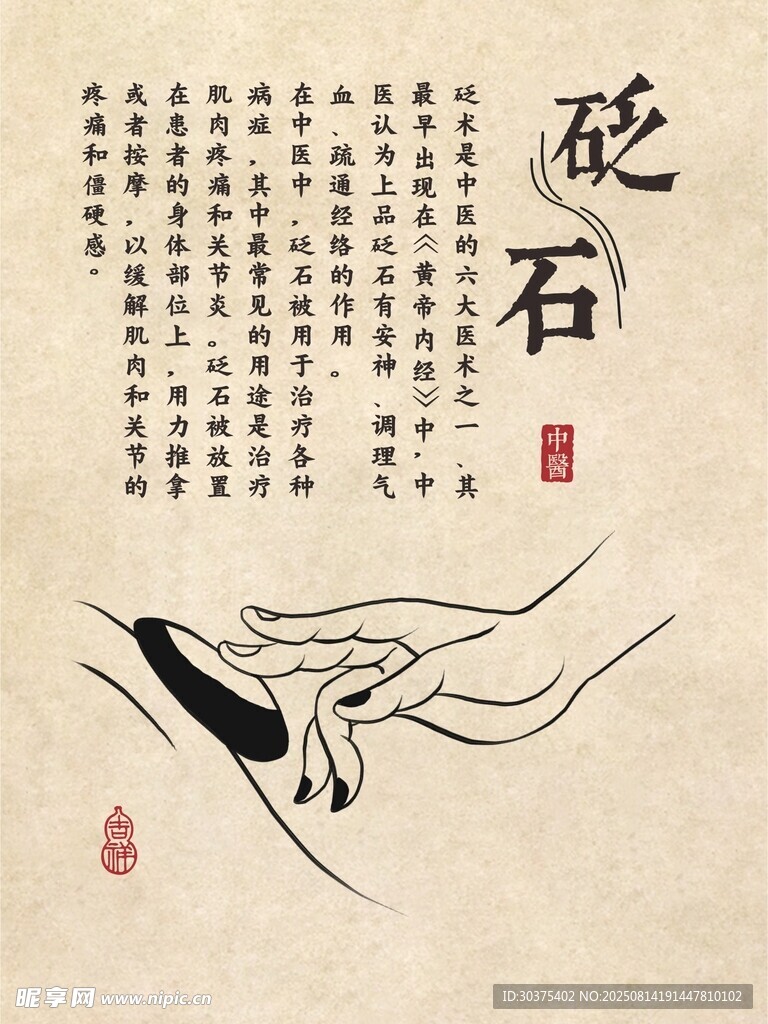 砭石
中醫
砭术是中医的六大医术之一、其
最早出现在《黄帝内经》中，中
医认为上品砭石有安神、调理气
血、疏通经络的作用。
在中医中，砭石被用于治疗各种
病症，其中最常见的用途是治疗
肌肉疼痛和关节炎。砭石被放置
在患者的身体部位上，用力推拿
或者按摩，以缓解肌肉和关节的
疼痛和僵硬感。
吉祥
昵享网 www.nipic.cn
ID:30375402 NO:20250814191447810102